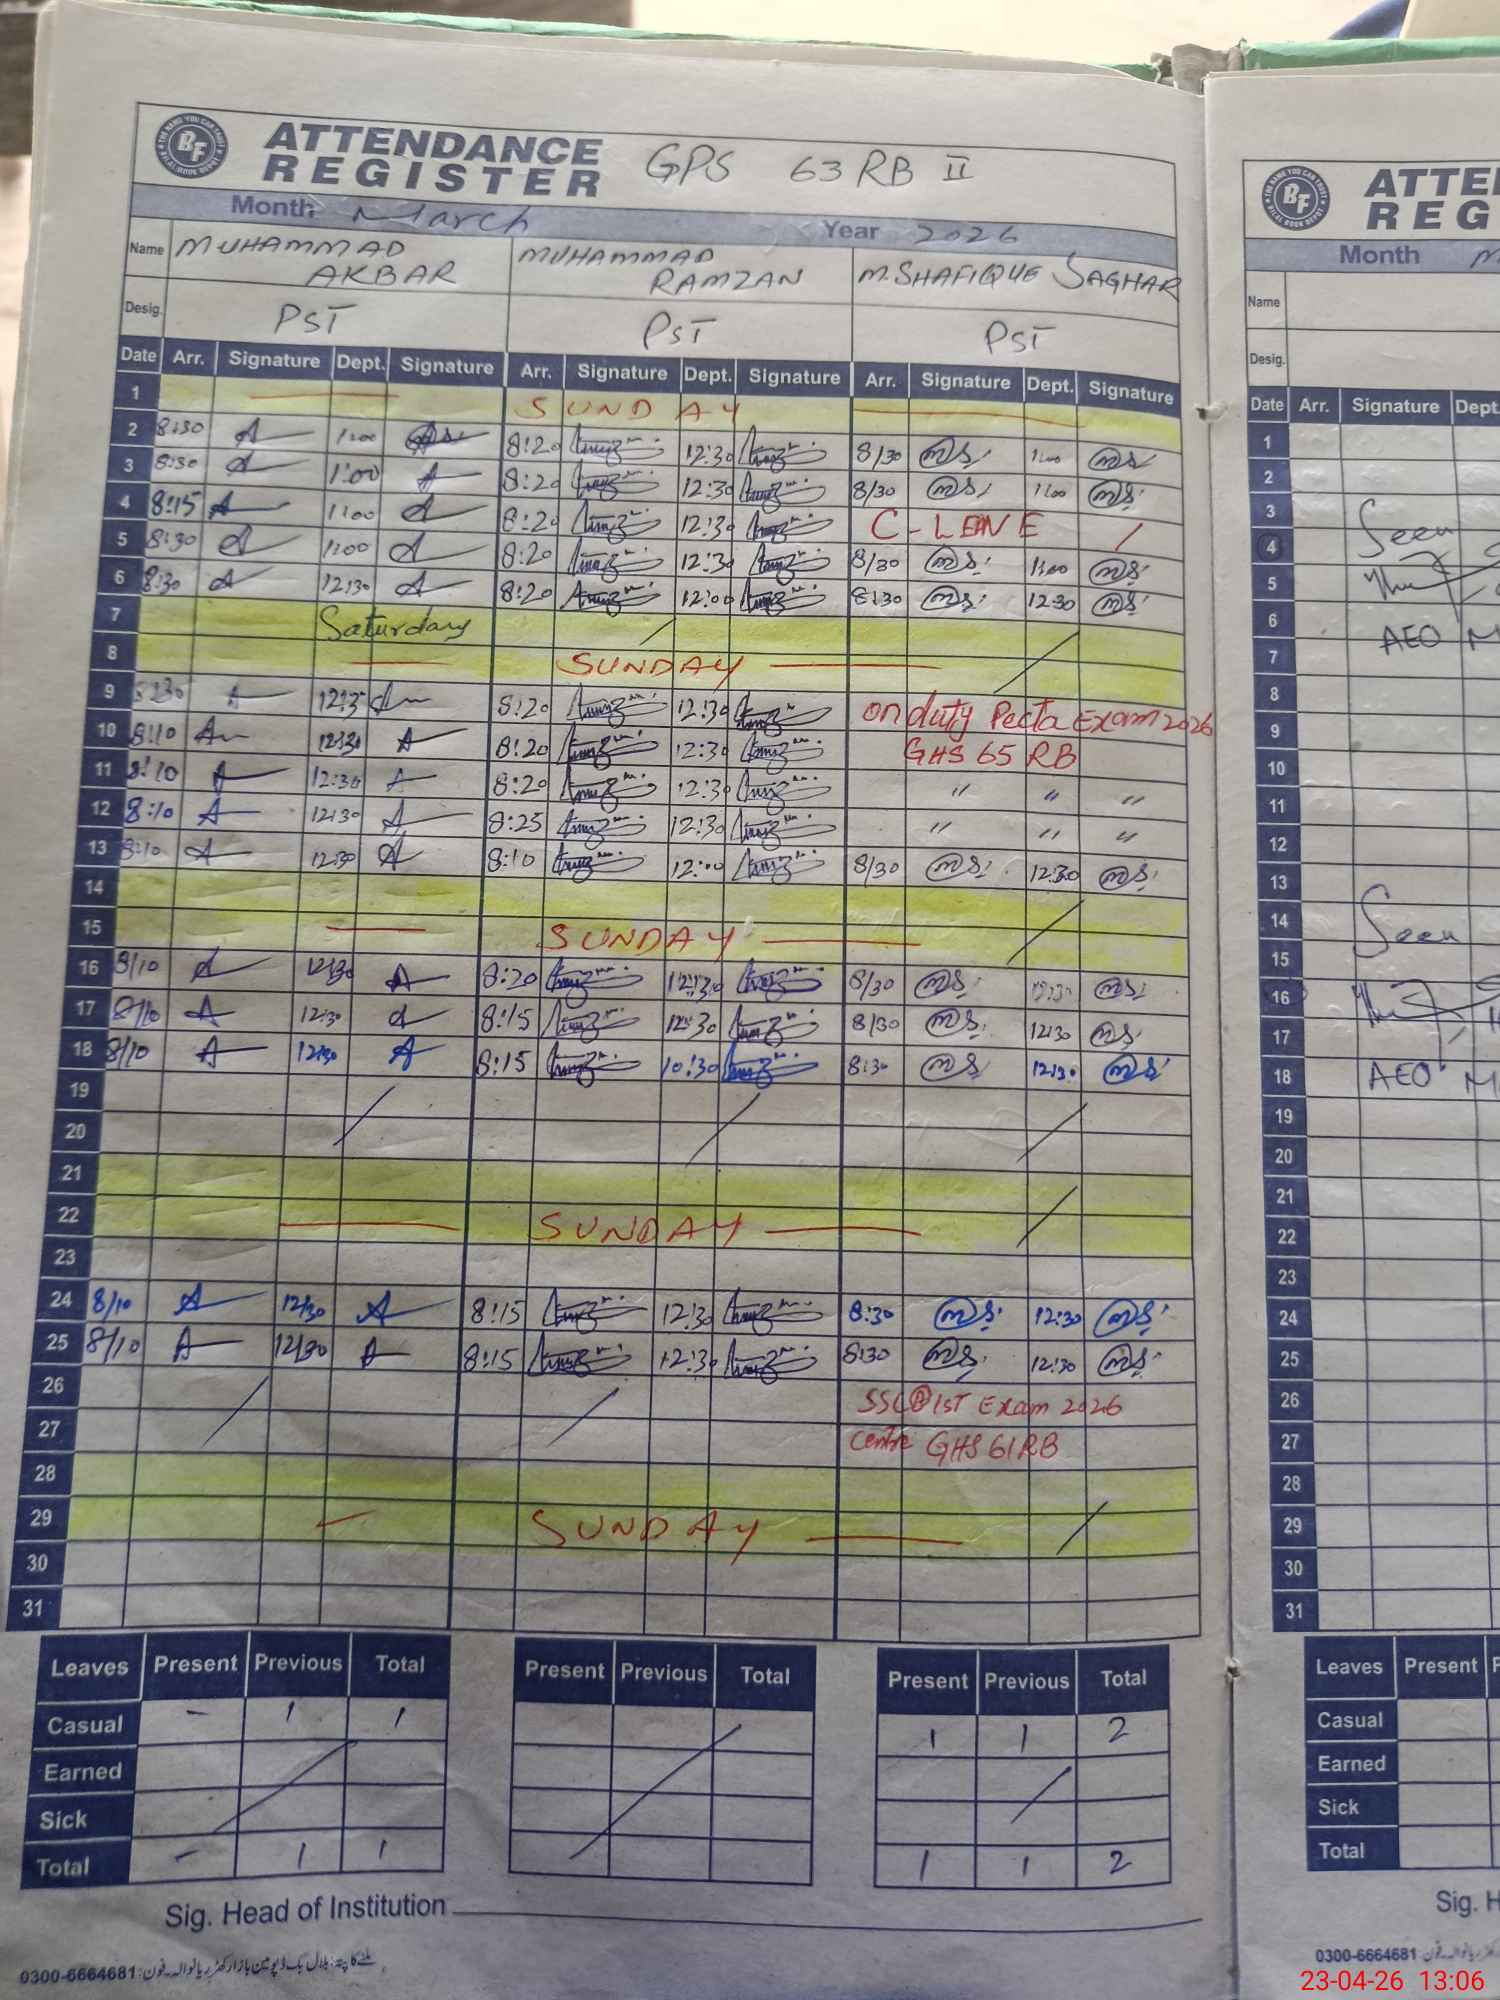 ATTENDANCE REGISTER GPS 63 RB II
Month March Year 2026
Name MUHAMMAD AKBAR MUHAMMAD RAMZAN M.SHAFIQUE SAGHAR
Desig. PST PST PST
Date Arr. Signature Dept. Signature Arr. Signature Dept. Signature Arr. Signature Dept. Signature
1 SUNDAY
2 8:30 1:00 8:20 12:30 8/30 1:00
3 8:30 1:00 8:20 12:30 8/30 1:00
4 8:15 1:00 8:20 12:30 C-LEAVE
5 8:30 1:00 8:20 12:30 8/30 1:00
6 8:30 12:30 8:20 12:00 8:30 12:30
7 Saturday
8 SUNDAY
9 8:30 8:20 12:30 on duty Pecta Exam 2026
10 8:10 12:30 8:20 12:30 GHS 65 RB
11 8:10 12:30 8:20 12:30 " " "
12 8:10 12:30 8:25 12:30 " " "
13 8:10 12:30 8:10 12:00 8/30 12:30
14
15 SUNDAY
16 8/10 12:30 8:20 12:30 8/30
17 8/10 12:30 8:15 12:30 8/30 12:30
18 8/10 12:30 8:15 10:30 8:30 12:30
19
20
21
22 SUNDAY
23
24 8/10 12/30 8:15 12:30 8:30 12:30
25 8/10 12/30 8:15 12:30 8:30 12:30
26 1st Exam 2026
27 Centre GHS 61 RB
28
29 SUNDAY
30
31
Leaves Present Previous Total Present Previous Total Present Previous Total
Casual - 1 1 1 1 2
Earned
Sick
Total - 1 1 1 1 2
Sig. Head of Institution
0300-6664681
ATTE
REG
Month
Name
Desig.
Date Arr. Signature Dept
1
2
3 Seen
4
5
6 AEO
7
8
9
10
11
12
13
14 Seen
15
16
17
18 AEO
19
20
21
22
23
24
25
26
27
28
29
30
31
Leaves Present
Casual
Earned
Sick
Total
Sig. H
0300-6664681
23-04-26 13:06